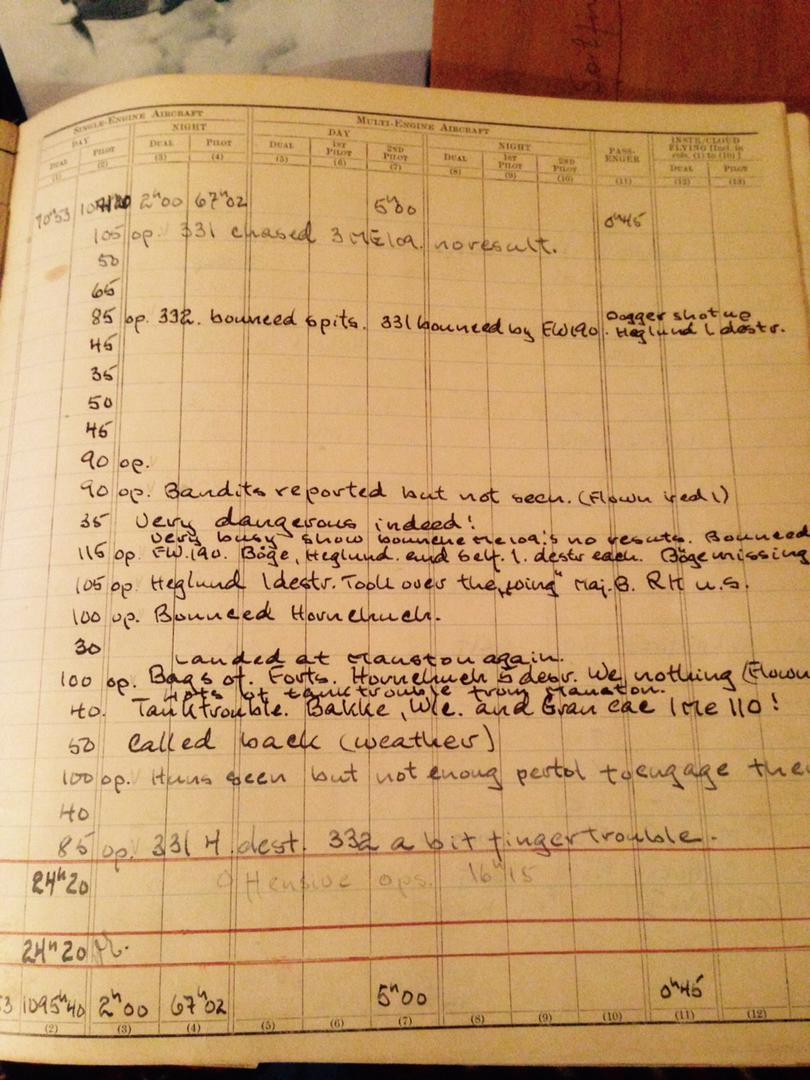 SINGLE-ENGINE AIRCRAFT MULTI-ENGINE AIRCRAFT
DAY NIGHT DAY NIGHT PASS-ENGER INSTR/CLOUD FLYING [Incl. in cols. (1) to (10)]
DUAL PILOT DUAL PILOT DUAL 1ST PILOT 2ND PILOT DUAL 1ST PILOT 2ND PILOT DUAL PILOT
(1) (2) (3) (4) (5) (6) (7) (8) (9) (10) (11) (12) (13)
2h00 67h02 5h00 0h45
105 op. 331 chased 3 ME109. no result.
50
65
85 op. 332. bounced spits. 331 bounced by FW190. Dogger shot up
Heglund 1 destr.
45
35
50
45
90 op.
90 op. Bandits reported but not seen. (Flown red 1)
35 Very dangerous indeed!
Very busy show bounced Me109's no resuts. Bounced
115 op. FW.190. Böge, Heglund. and self. 1. destr each. Böge missing
105 op. Heglund 1 destr. Took over the „wing" Maj. B. RH u.s.
100 op. Bounced Hornchurch.
30
Landed at Manston again.
100 op. Bags of. Forts. Hornchurch 5 destr. We nothing (Flown
Lots of tanktrouble from Manston.
40. Tanktrouble. Bakke, Wle. and Gran eae 1 Me 110!
50 Called back (weather)
100 op. Huns seen but not enoug pertol to engage the
40
85 op. 331 4. dest. 332 a bit fingertrouble.
24h20 Offensive ops. 16h15
24h20
53 1095h40 2h00 67h02 5h00 0h45
(2) (3) (4) (5) (6) (7) (8) (9) (10) (11) (12)